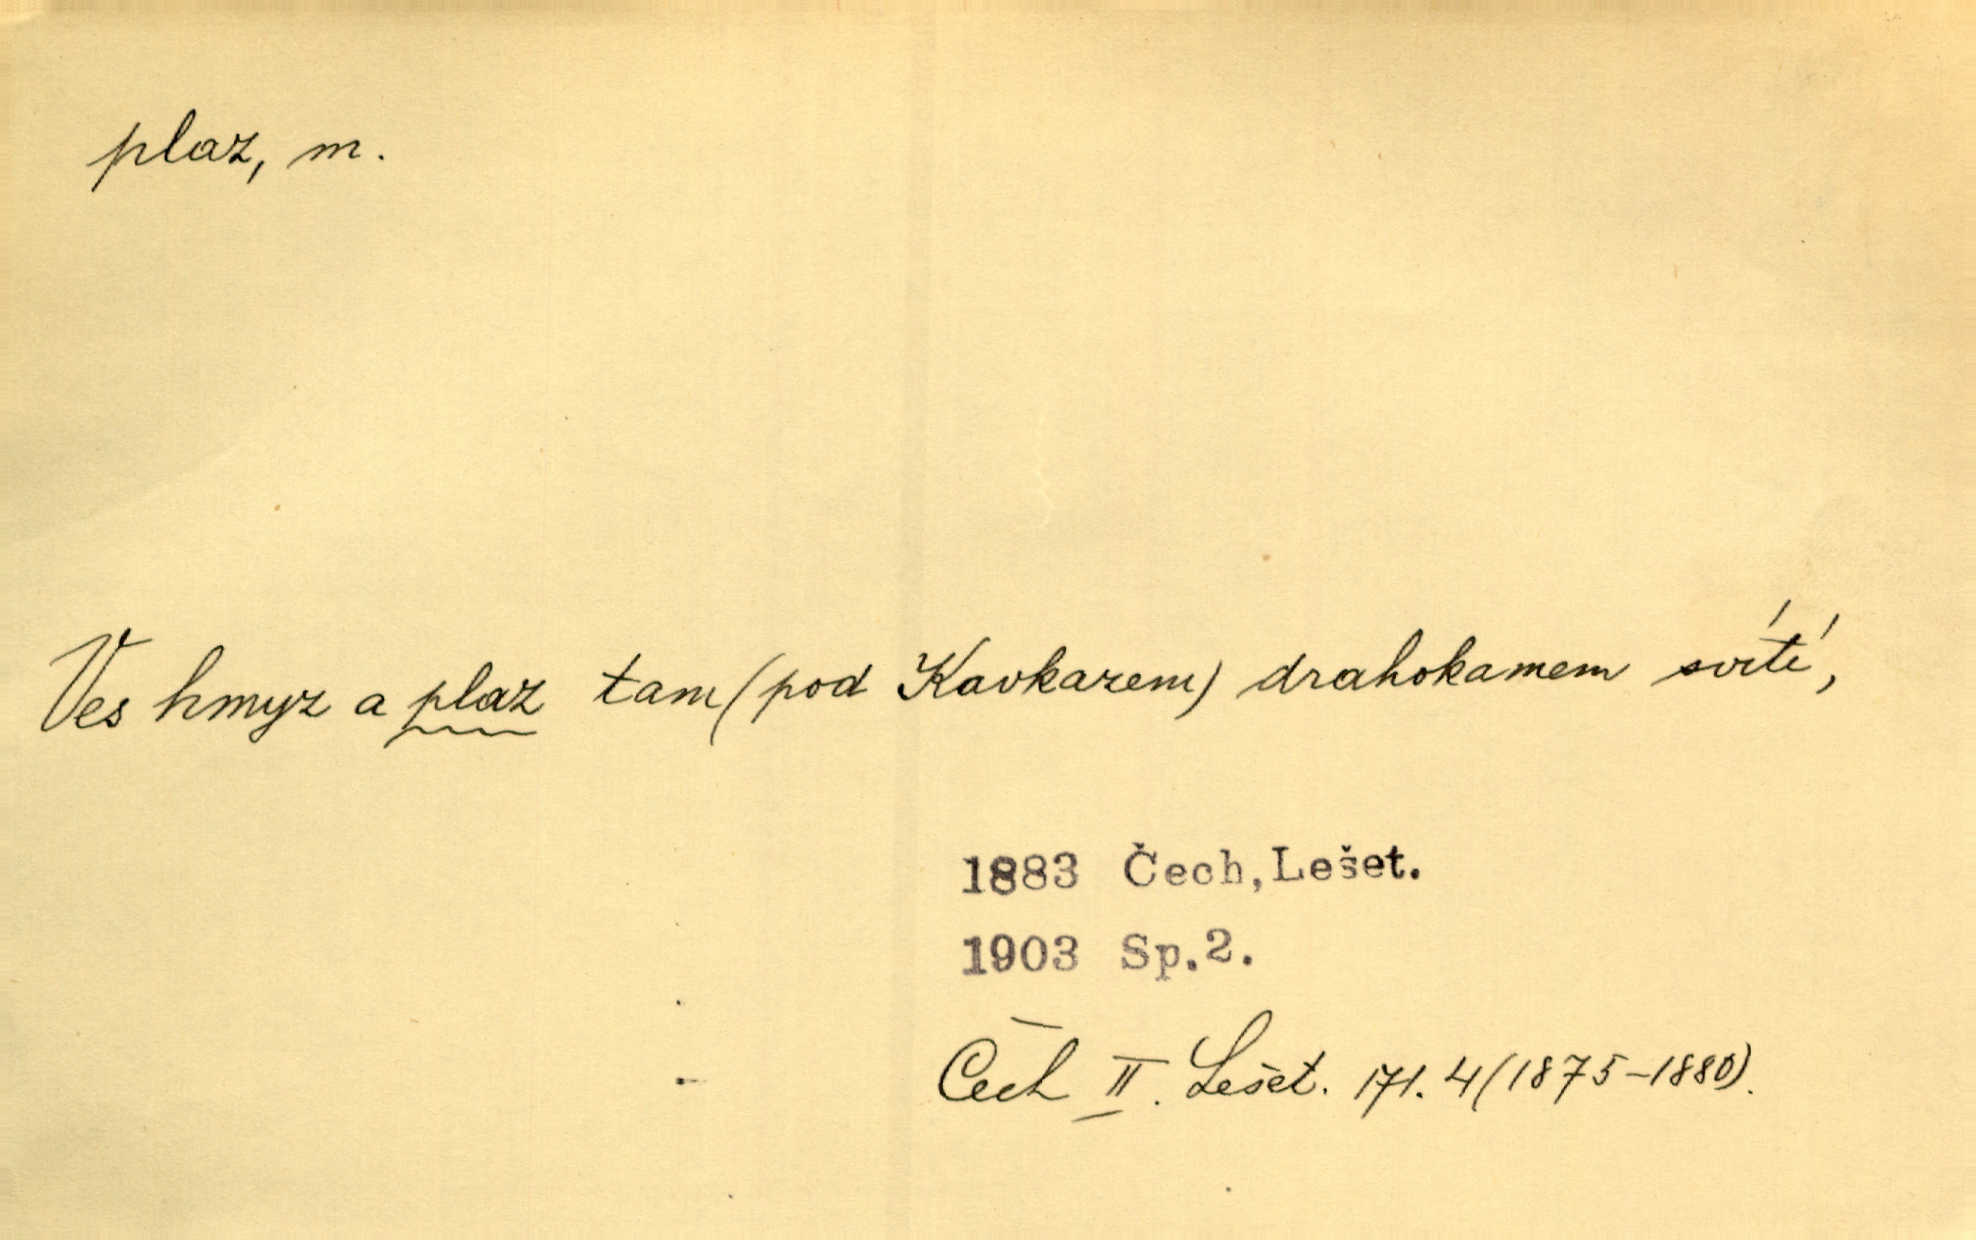 plaz, m.
Ves hmyz a plaz tam (pod Kavkazem) drahokamem svítí,
1883 Čech, Lešet.
1903 Sp.2.
Čech II. Lešet. 171. 4 (1875-1880).